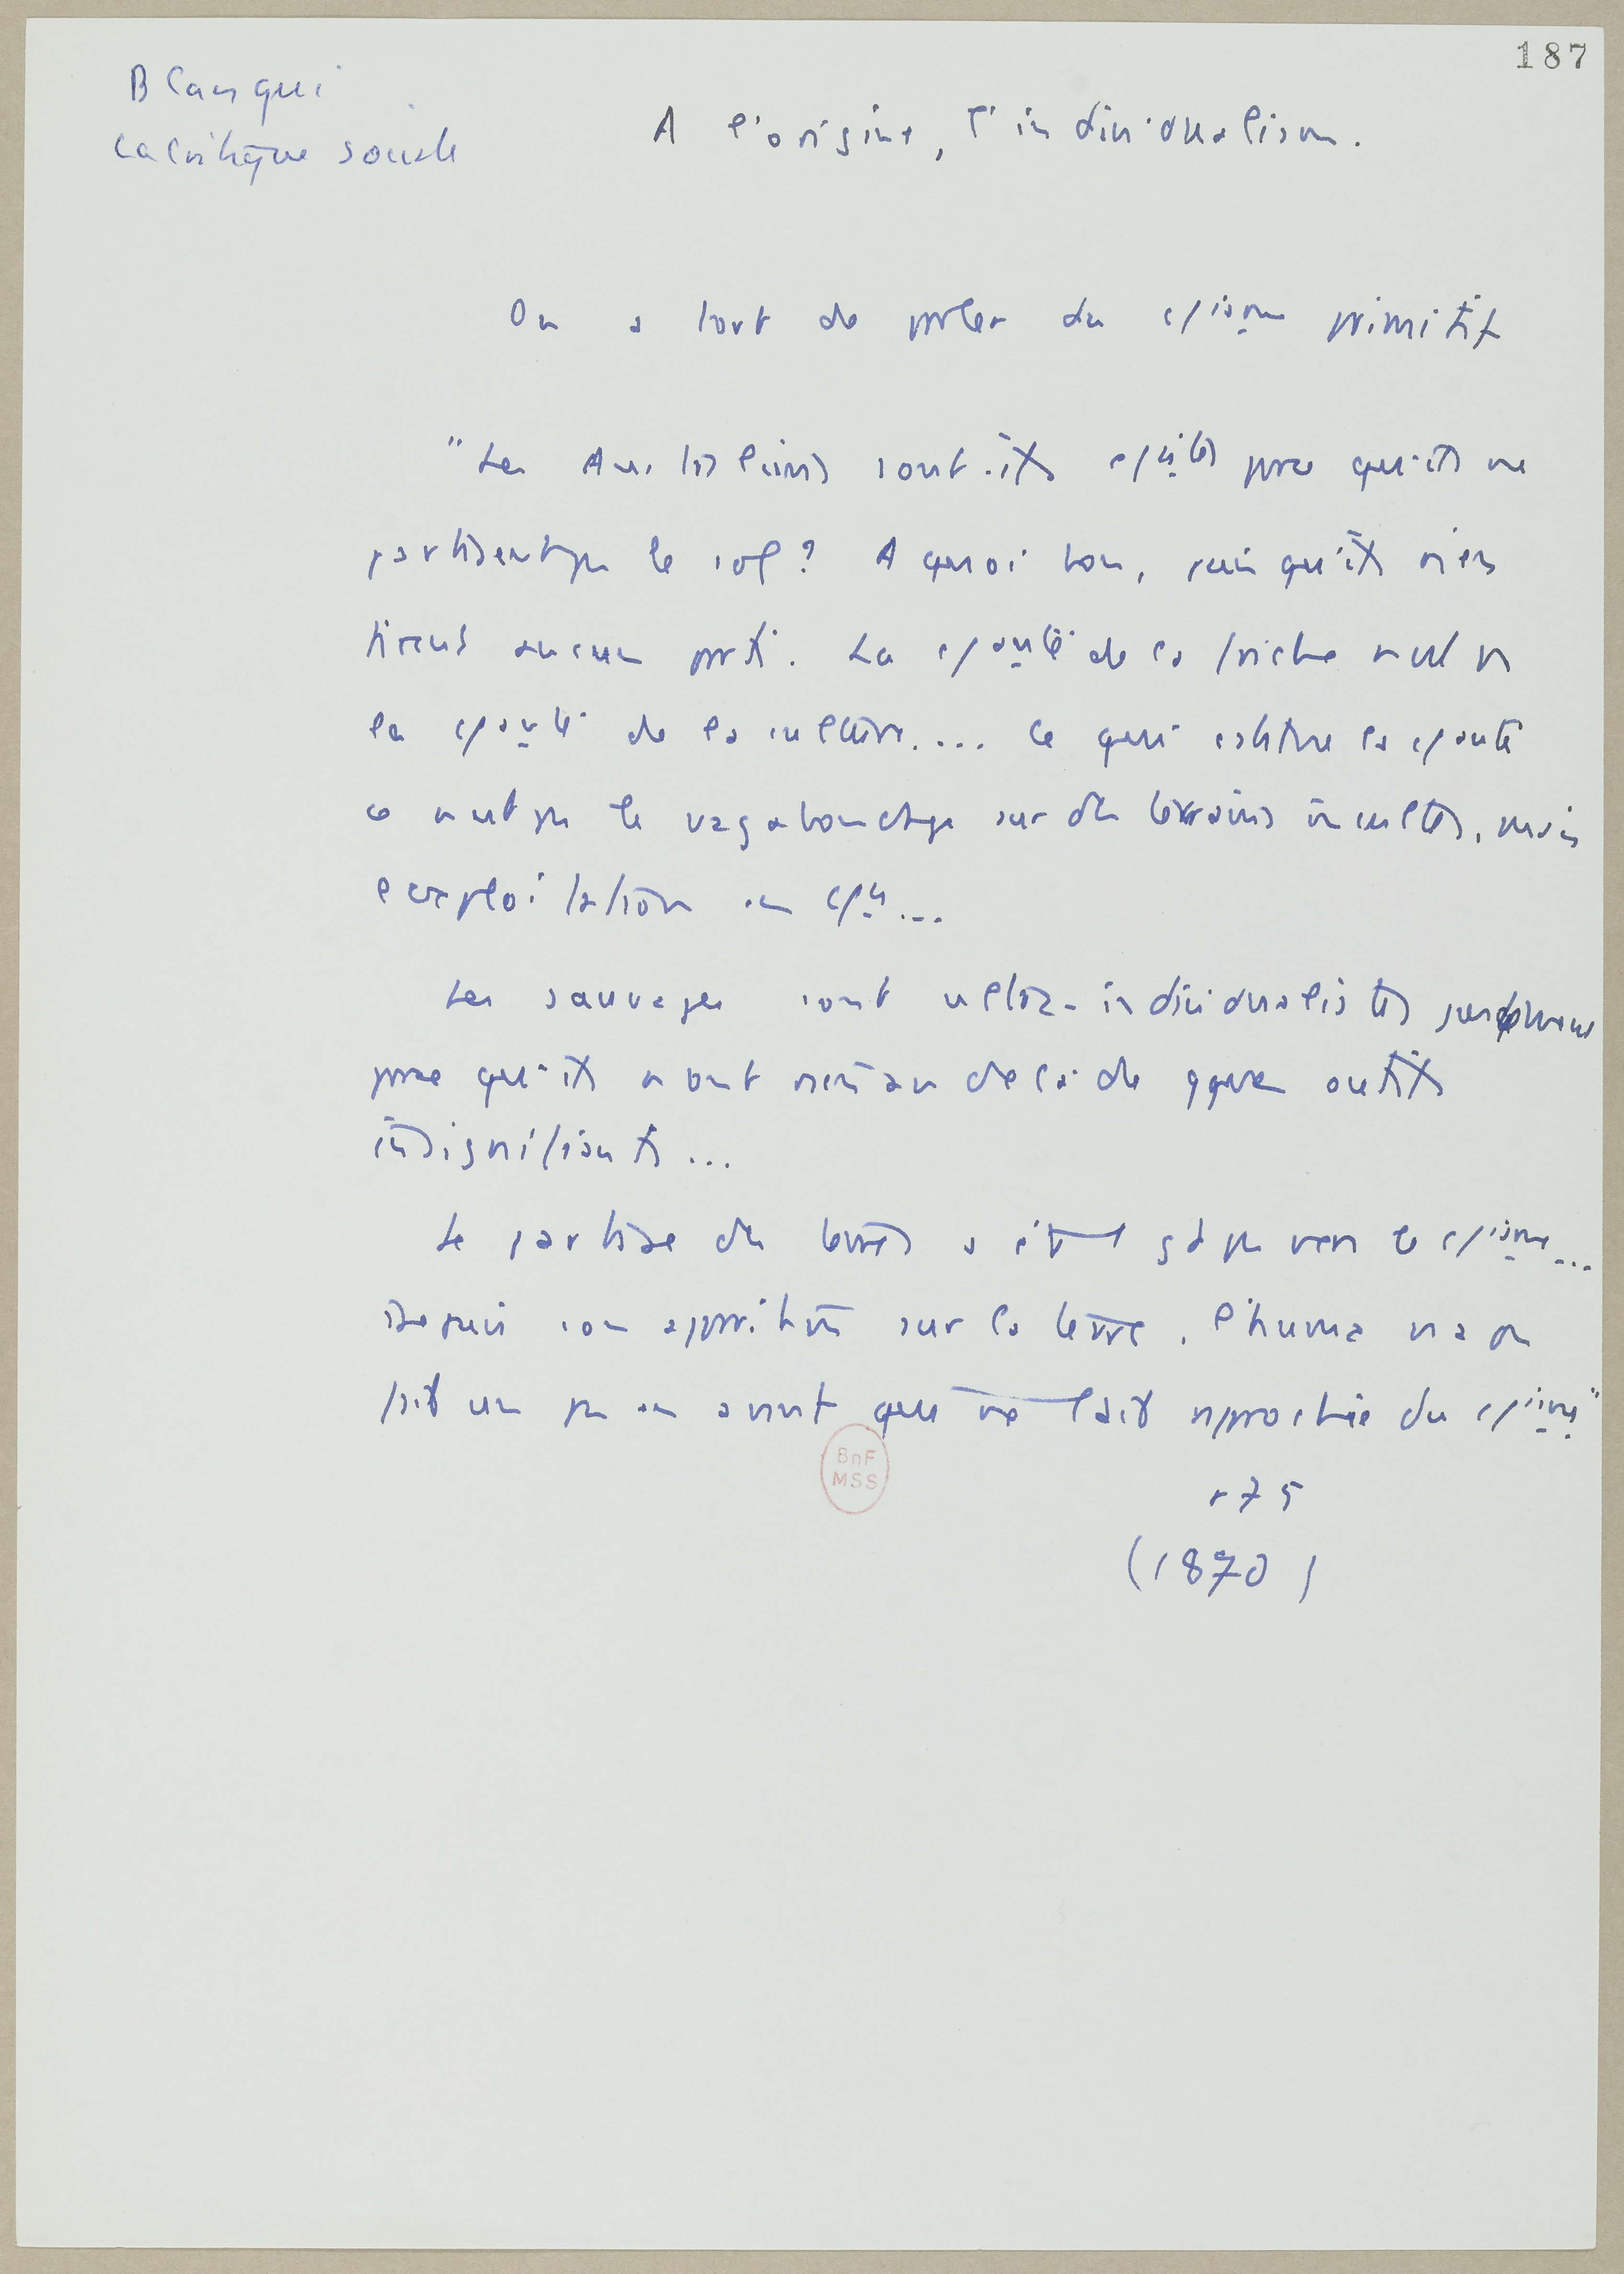 187
Blanqui
La critique sociale
A l'origine, l'individualisme.
On a tort de parler du c/isme primitif
"Les Australiens sont-ils c/istes parce qu'ils ne
partagent pas le sol ? A quoi bon, puisqu'ils n'en
tirent aucun parti. La c/auté de la friche n'est pas
la c/auté de la culture.... Ce qui constitue la c/auté
ce n'est pas le vagabondage sur des terrains incultes, mais
l'exploitation en c/un...
Les sauvages sont ultra-individualistes
parce qu'ils n'ont rien au delà de qques outils
insignifiants...
Le partage des terres a été un gd pas vers le c/isme...
Depuis son apparition sur la terre, l'huma n'a pas
fait un pas en avant qui ne l'ait rapprochée du c/isme"
p 75
(1870)
BnF
MSS